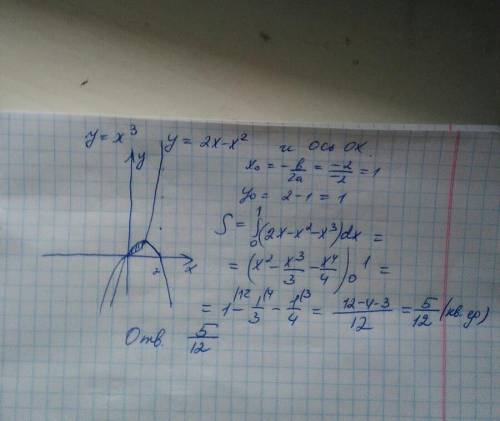 y = x³ y = 2x-x² и ось OX.
y
x₀ = -b/2a = -2/-2 = 1
y₀ = 2-1 = 1
S = ∫₀¹(2x-x²-x³)dx =
2 x
= (x² - x³/3 - x⁴/4)|₀¹ =
= 1\12 - 1\4/3 - 1\3/4 = 12-4-3/12 = 5/12 (кв. ед)
Отв. 5/12